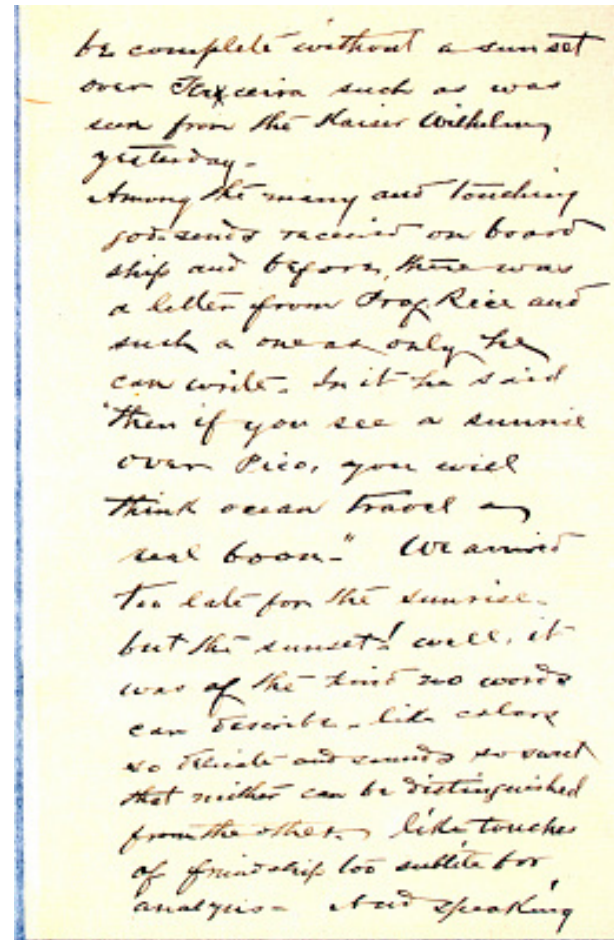 be complete without a sunset
over Terceira such as was
seen from the Kaiser Wilhelm
yesterday.
Among the many and touching
god-sends received on board
ship and before, there was
a letter from Prof. Rice and
such a one as only he
can write. In it he said
"then if you see a sunrise
over Pico, you will
think ocean travel a
real boon." We arrived
too late for the sunrise.
but the sunset! well, it
was of the kind no words
can describe. like colors
so delicate and sounds so sweet
that neither can be distinguished
from the other, like touches
of friendship too subtile for
analysis. And speaking